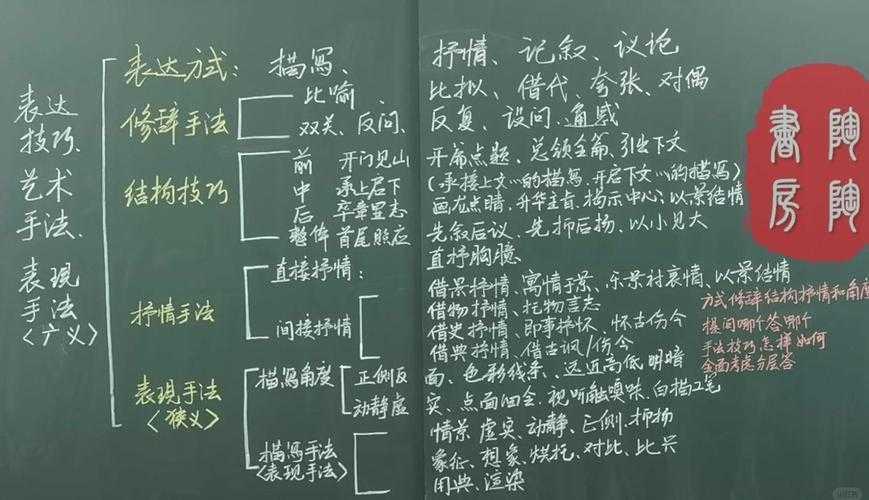 表达
技巧、
艺术
手法、
表现
手法
<广义>
表达方式：描写、抒情、记叙、议论
修辞手法
比喻、比拟、借代、夸张、对偶
双关、反问、反复、设问、通感
结构技巧
前 开门见山 开篇点题、总领全篇、引出下文
中 承上启下 (承接上文…的描写、开启下文…的描写)
后 卒章显志 画龙点睛、升华主旨、揭示中心；以景结情
整体 首尾照应 先叙后议、先抑后扬、以小见大
抒情手法
直接抒情：直抒胸臆
间接抒情
借景抒情、寓情于景、乐景衬哀情、以景结情
借物抒情、托物言志
借史抒情、即事抒怀、怀古伤今
借典抒情、借古讽/伤今
表现手法
<狭义>
描写角度
正侧反面、色彩线条、远近高低明暗
动静虚实、点面结合、视听触嗅味、白描工笔
描写手法
<表现手法>
情景 虚实、动静、正侧、抑扬
象征、想象、烘托、对比、比兴
用典、渲染
方式修辞结构抒情和角度
提问哪个答哪个
手法技巧怎样如何
全面考虑分层答
陶陶
書房